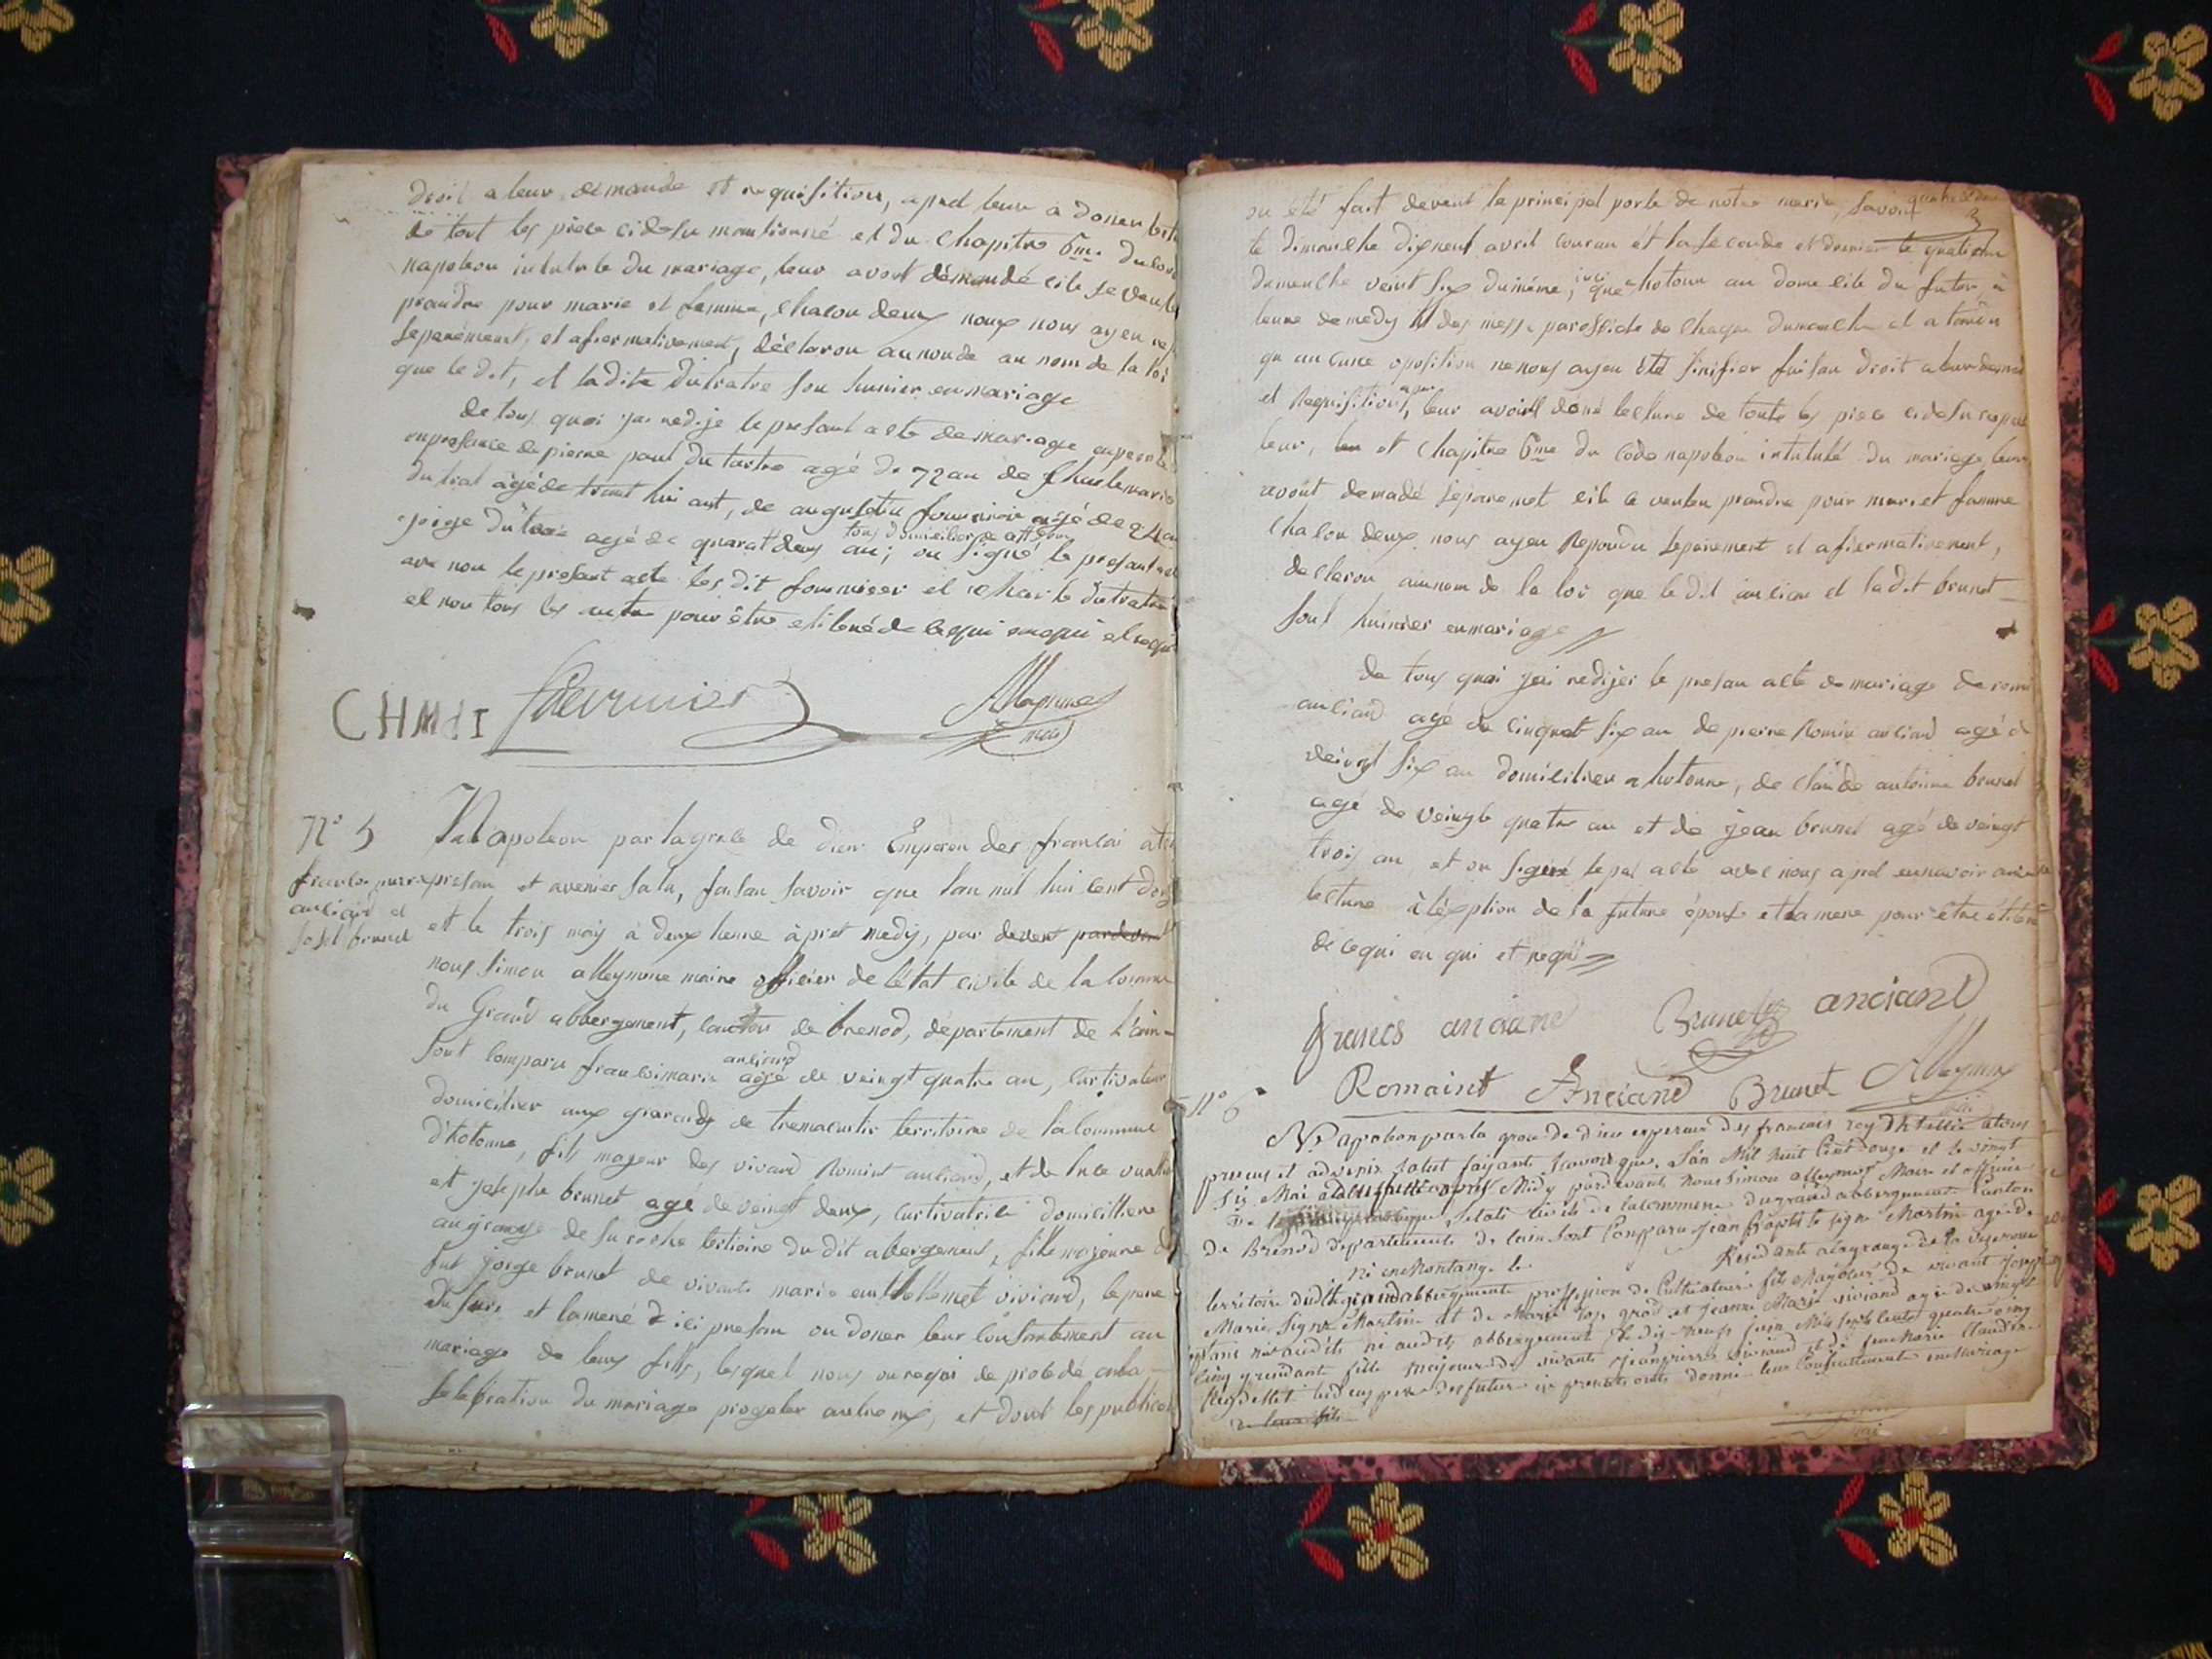 droit a leur demande et requisition, apred leur a doner lect
de tout les pièce cidesu mantionné et du chapitre 6me du cod
napoleon intutule du mariage, leur avont démendé cile se veule
prandre pour marie et femme, chacon deux noux nous ayen re
separément, et afiermativement, déclaron aunonde au nom de la loi
que le dit, et la dite dutratre son hunier en mariage
de tous quoi jai redije le presant acte de mariage
en presance de pierre paul du tartre agé de 72 an de Charle marie
dutrat agé de trant hui ant, de augustin fournier agé de 24 an
joige dutra agé de quarat deux an; tous domicilier on signé le presant act
ave nou le presant acte les dit fournieer et charle dutratre
et non tous les autre pour être
CHMdI fournier Alleymne
maire
N° 5 Napoleon par la grace de dieu Emperou der francai a to
presan et avenier salu, faisan savoir que lan mil hui cent dou
anciand et
josel brunet et le trois may à deux heure àpret medy, par devent pardevan
nous simon alleymne maire officier de létat civile de la comune
du Grand abbergement, canton de brenod, département de l'ain
sont comparu francoi marie anciand agé de veingt quatre an, cultivateur
domicilier aux granody de tremacurtir territoire de la commune
d'hotonne, fils majeur des vivand Romint anciand, et de
et josephe brunet agé de veingt deux, curtivatrice domicillere
au grange de sur roche teritoire du dit abergement, fille majeure d
fut joige brunet de vivante marie viviand, le pere
du futur et la meré d ici presan on doner leur consantement au
mariage de leur fills, lesquel nous on requi de procedé a la
selebration du mariage progeter antre eux, et dont les publicat
ou été fait devent la principal porte de notre marie, savoir
le dimanche dixneuf avril couran et la seconde et dernier le quatriem
dimenche veint six du méme, que hotonne au domecile du futur à
leure de medy des messe parossiale de chaque dimenche et atandu
qu aucune oposition ne nous ayen été sinifier faisan droit a leur demande
et Requisition, leur avoir doné lecture de toute les piece cidesu
leur, et chapitre 6me du code napoleon intutulé du mariage leur
avont demadé séparemet cile ce veulen prandre pour mari et famme
chacon deux nous ayen Repondu séparement et afiermativement,
declaron aunom de la loi que le dit anciar et la dit brunet
sont huinier en mariage
de tous quoi jai redijer le presan acte de mariage de romin
anciand agé de cinquat six an de pierre Romin anciand agé d
veingt six an domicilier a hotonne, de claude antoinne brunet
agé de veingte quatre an et de jean brunet agé de veingt
trois an et on signé le pst acte avec nous apred en avoir
lecture à léxption de la future épouse et la mere pour être
de ce qui en qui et requi
francois anciand Brunet anciand
Romaint Anciand Brunet Alleymne
N° 6
Napoleon par la grace de dieu empereur des francois roy d'hitallie atous
presens et advenir salut faisant scavoir que, L'an Mil huit Cent douze et le vingt
six Mai a deux heure apres Midy pardevant Nous Simon alleymne Maire et officier
de létat civile de la commune du grand abbergement Canton
de Brenod departement de lain sont Comparu jean Baptiste signe Martin agé de
Né en Montange le Residante a la grange de la
territoire dudit grand abbergement profession de Cultivateur fils Majeur de vivant joseph
Marie signe Martin et de Marie et jeanne Marie viviand agé de vingt
sept ans né audits abbergement le dix neuf juin Mil sept cents quatre vingt
cinq fille Majeure de vivants jean pierre viviand et de feu Marie Claudine
les deux pere des futur ici presents ont donné leur Consentement en mariage
de leurs fils